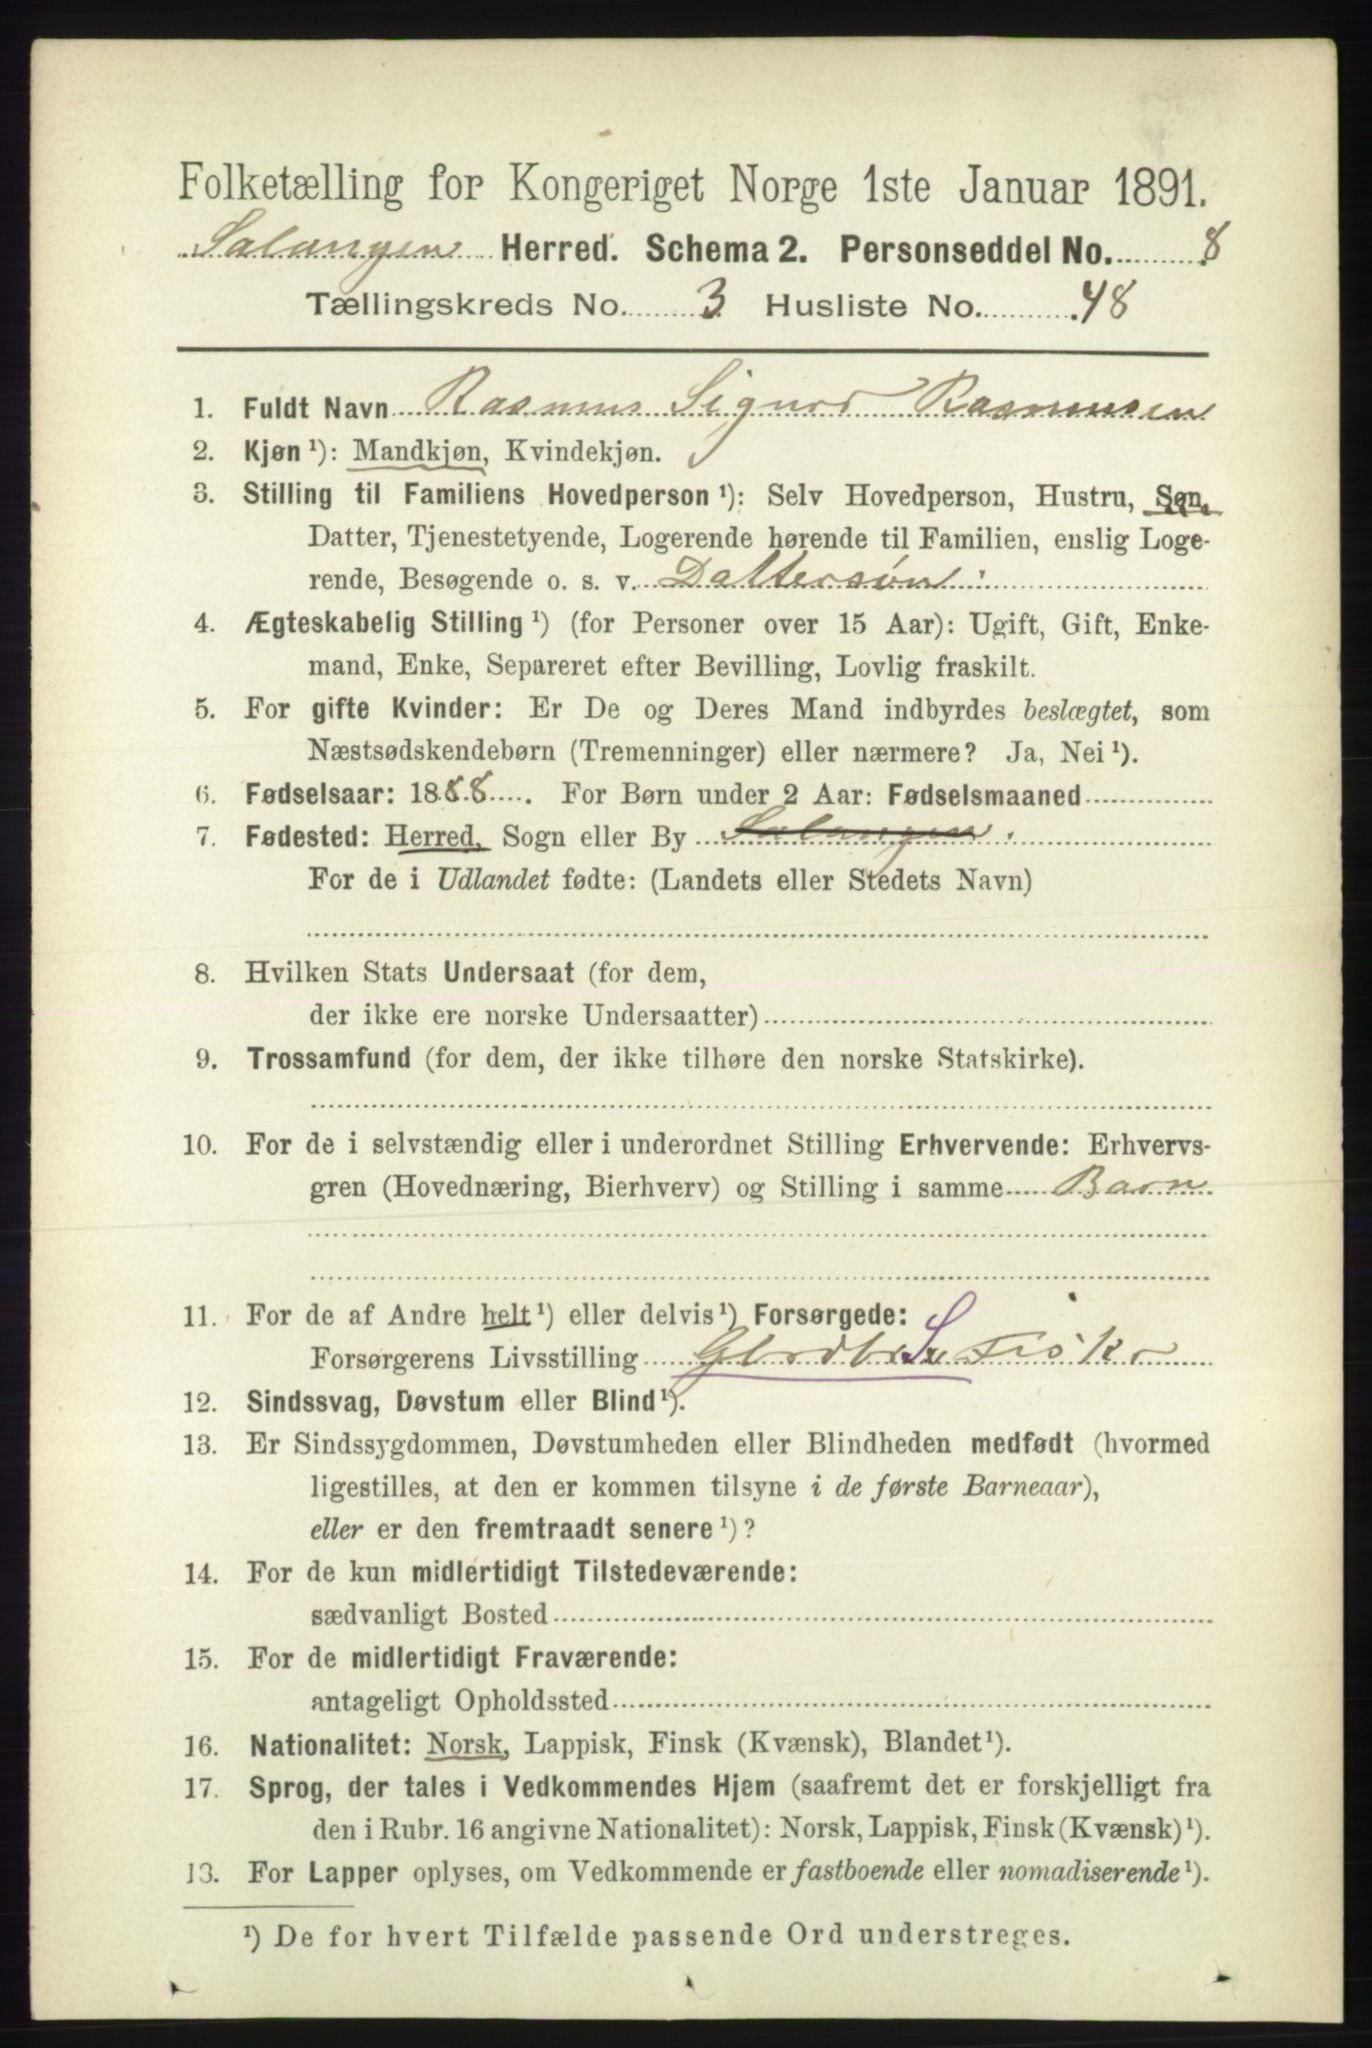 Folketælling for Kongeriget Norge 1ste Januar 1891.
Salangen Herred. Schema 2. Personseddel No. 8
Tællingskreds No. 3 Husliste No. 48
1. Fuldt Navn Rasmus Sigurd Rasmussen
2. Kjøn ¹): Mandkjøn, Kvindekjøn.
3. Stilling til Familiens Hovedperson ¹): Selv Hovedperson, Hustru, Søn,
Datter, Tjenestetyende, Logerende hørende til Familien, enslig Loge-
rende, Besøgende o. s. v. Dattersøn
4. Ægteskabelig Stilling ¹) (for Personer over 15 Aar): Ugift, Gift, Enke-
mand, Enke, Separeret efter Bevilling, Lovlig fraskilt.
5. For gifte Kvinder: Er De og Deres Mand indbyrdes beslægtet, som
Næstsødskendebørn (Tremenninger) eller nærmere? Ja, Nei ¹).
6. Fødselsaar: 1888. For Børn under 2 Aar: Fødselsmaaned
7. Fødested: Herred, Sogn eller By Salangen.
For de i Udlandet fødte: (Landets eller Stedets Navn)
8. Hvilken Stats Undersaat (for dem,
der ikke ere norske Undersaatter)
9. Trossamfund (for dem, der ikke tilhøre den norske Statskirke).
10. For de i selvstændig eller i underordnet Stilling Erhvervende: Erhvervs-
gren (Hovednæring, Bierhverv) og Stilling i samme Barn
11. For de af Andre helt ¹) eller delvis ¹) Forsørgede:
Forsørgerens Livsstilling S
12. Sindssvag, Døvstum eller Blind ¹).
13. Er Sindssygdommen, Døvstumheden eller Blindheden medfødt (hvormed
ligestilles, at den er kommen tilsyne i de første Barneaar),
eller er den fremtraadt senere ¹)?
14. For de kun midlertidigt Tilstedeværende:
sædvanligt Bosted
15. For de midlertidigt Fraværende:
antageligt Opholdssted
16. Nationalitet: Norsk, Lappisk, Finsk (Kvænsk), Blandet ¹).
17. Sprog, der tales i Vedkommendes Hjem (saafremt det er forskjelligt fra
den i Rubr. 16 angivne Nationalitet): Norsk, Lappisk, Finsk (Kvænsk) ¹).
13. For Lapper oplyses, om Vedkommende er fastboende eller nomadiserende ¹).
¹) De for hvert Tilfælde passende Ord understreges.